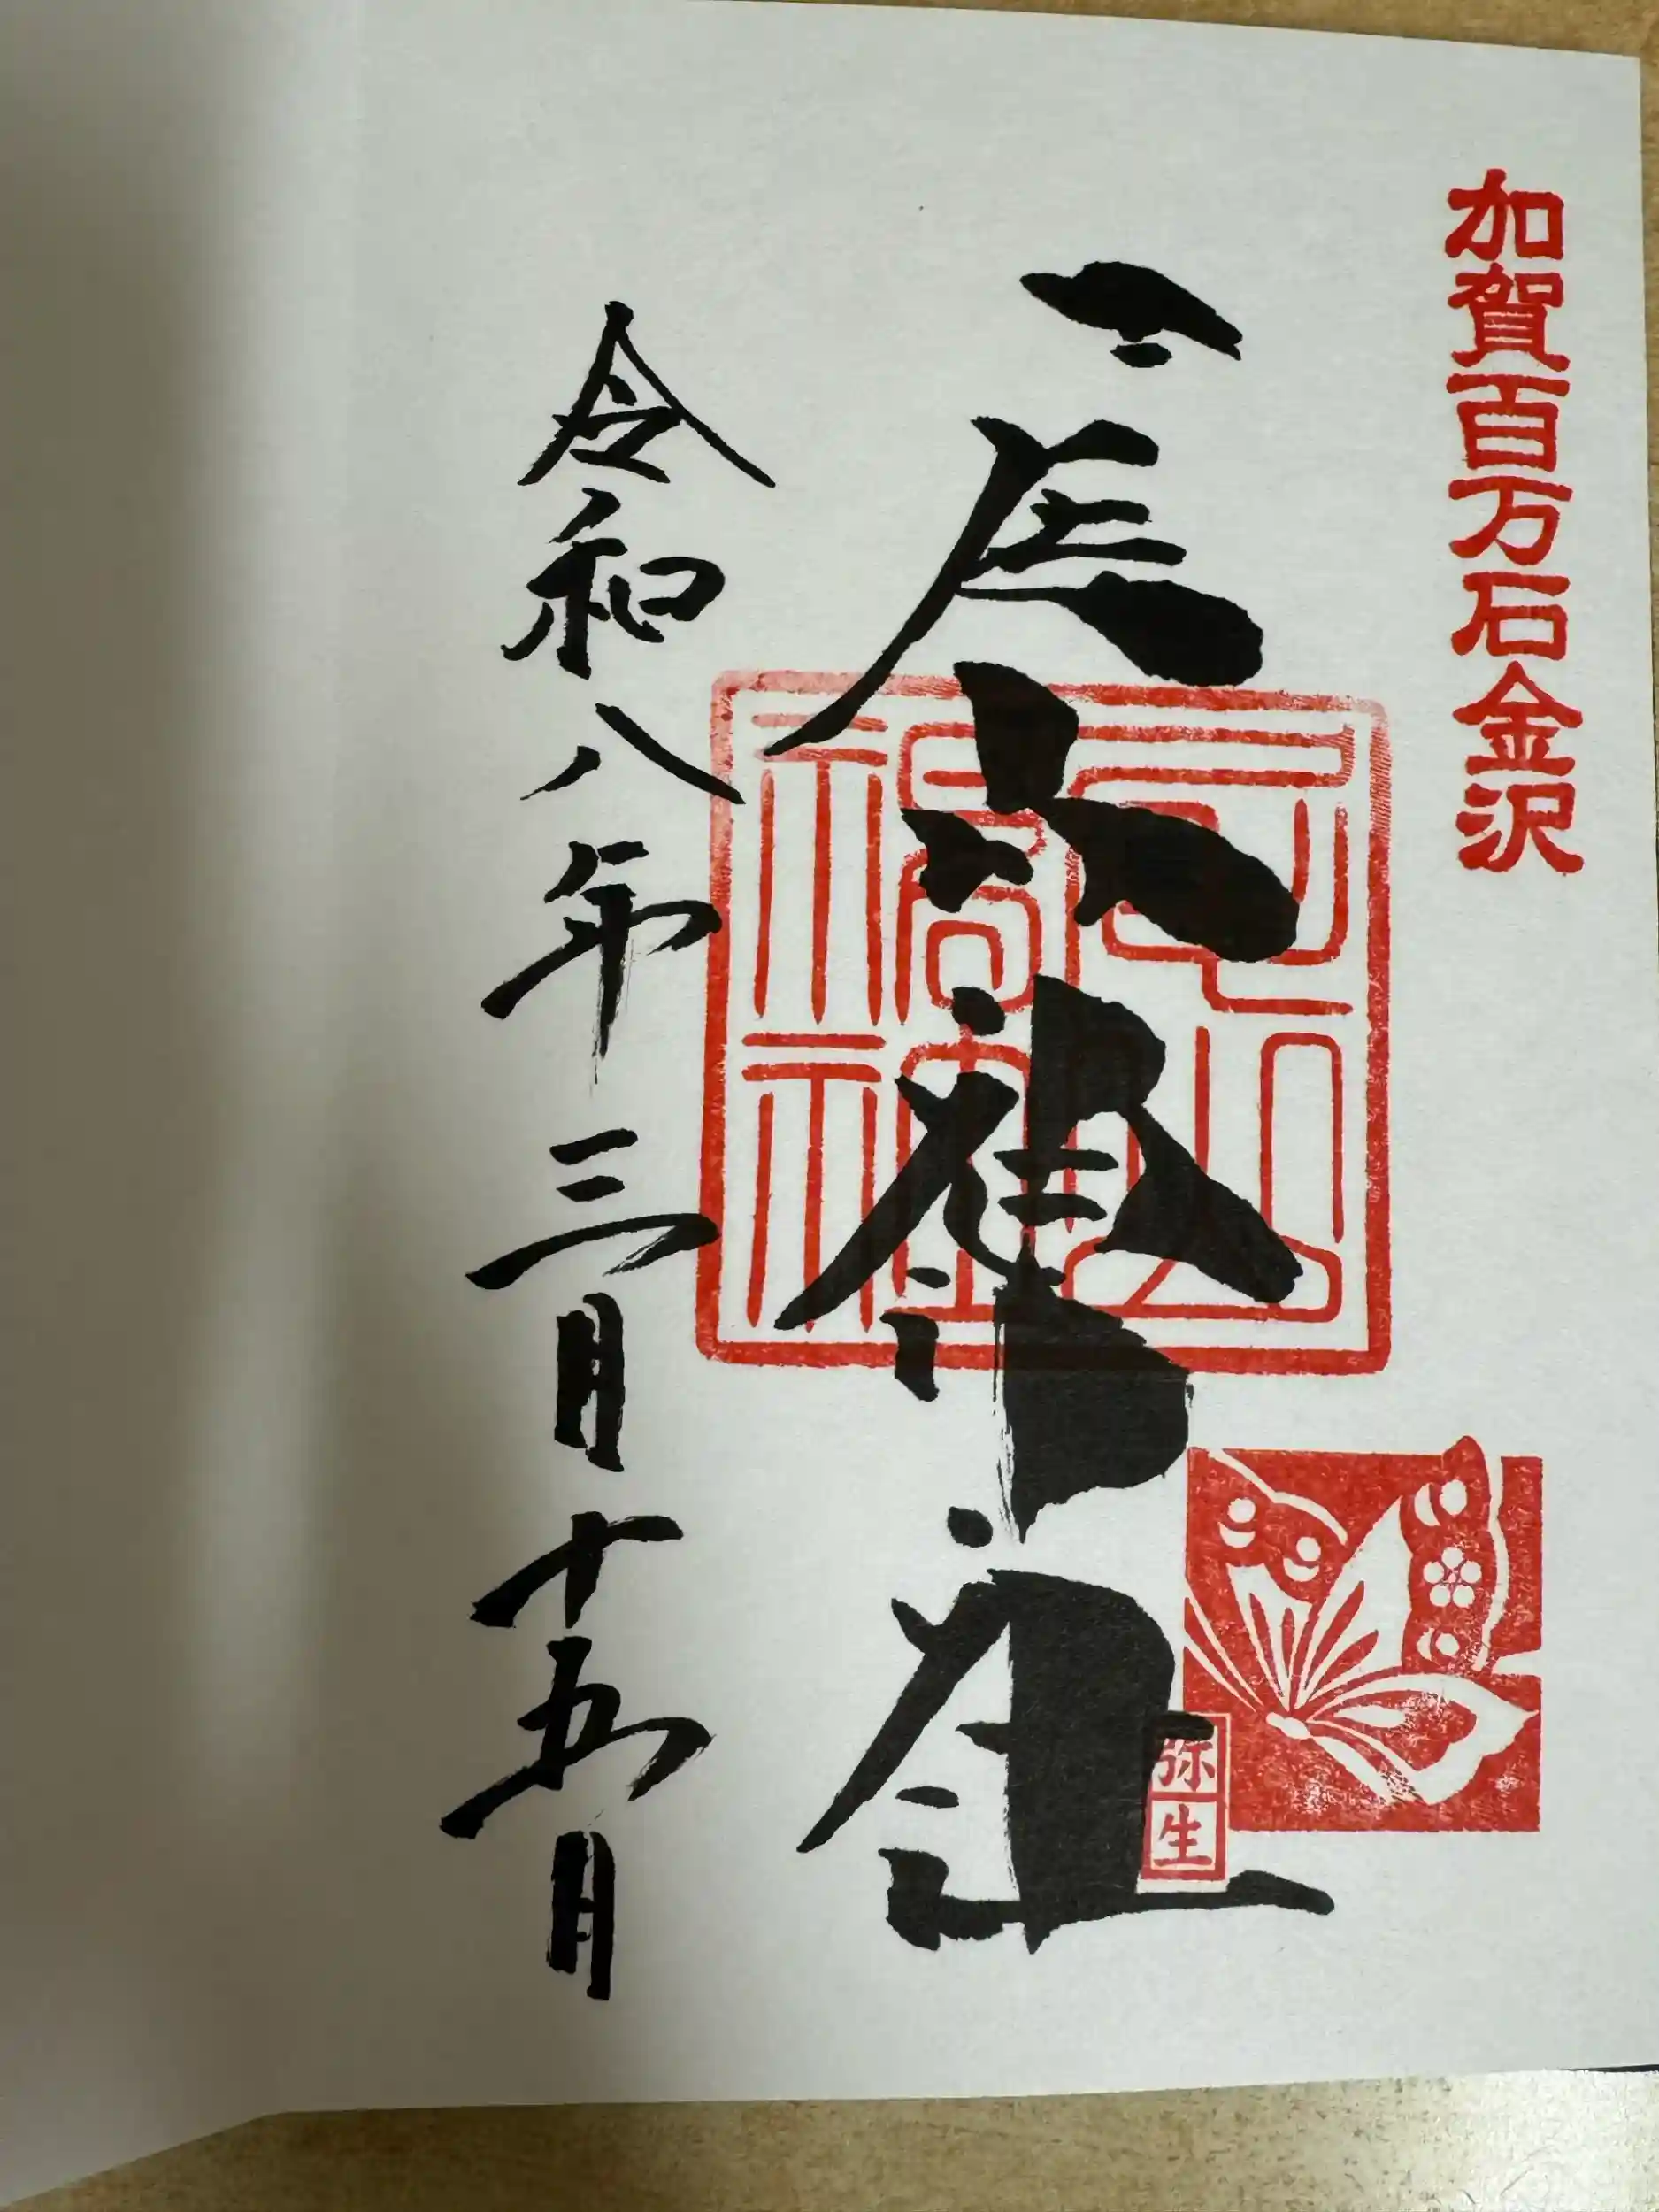 加賀百万石金沢
尾山神社
尾山神社
弥生
令和八年三月十五日